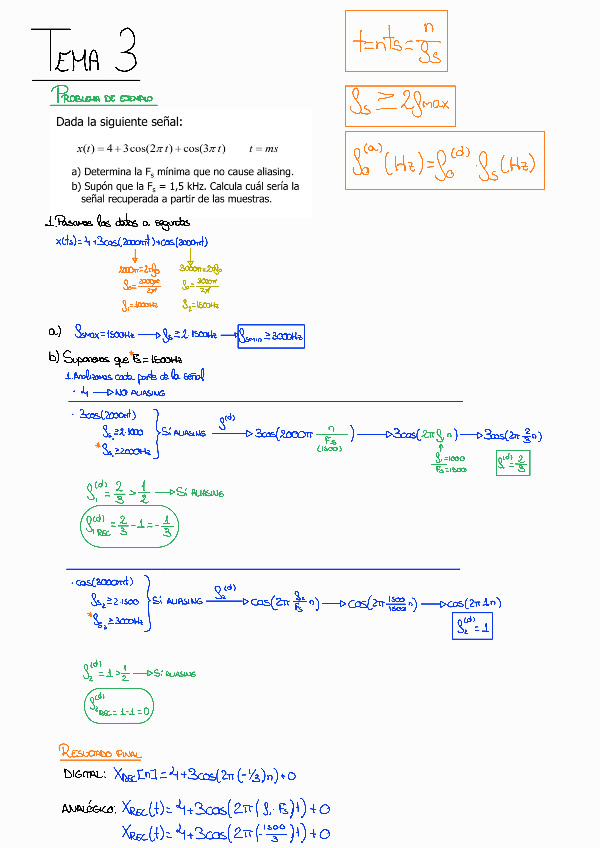 TEMA 3
t=nts=n/fs
PROBLEMA DE EJEMPLO
fs ≥ 2fmax
f₀⁽ᵃ⁾(Hz)=f₀⁽ᵈ⁾·fs(Hz)
Dada la siguiente señal:
x(t) = 4 + 3cos(2π t) + cos(3π t)  t = ms
a) Determina la Fs mínima que no cause aliasing.
b) Supón que la Fs = 1,5 kHz. Calcula cuál sería la
señal recuperada a partir de las muestras.
1. Pasamos los datos a segundos
x(ts)=4+3cos(2000πt)+cos(3000πt)
2000π=2πf₀ 3000π=2πf₀
f₀=2000π/2π f₀=3000π/2π
f₁=1000Hz f₂=1500Hz
a) fsmax=1500Hz → fs ≥ 2·1500Hz → fsmin ≥ 3000Hz
b) Suponemos que *Fs=1500Hz
1. Analizamos cada parte de la señal
· 4 → NO ALIASING
· 3cos(2000πt)
fs₁≥2·1000
*fs₁≥2000Hz
SÍ ALIASING f₁⁽ᵈ⁾ → 3cos(2000π n/Fs (1500)) → 3cos(2π f₁ n) → 3cos(2π 2/3 n)
f₁=1000
Fs=1500
f₁⁽ᵈ⁾=2/3
f₁⁽ᵈ⁾=2/3>1/2 → SÍ ALIASING
f₁⁽ᵈ⁾REC=2/3-1=-1/3
· cos(3000πt)
fs₂≥2·1500
*fs₂≥3000Hz
SÍ ALIASING f₂⁽ᵈ⁾ → cos(2π f₂/Fs n) → cos(2π 1500/1500 n) → cos(2π 1n)
f₂⁽ᵈ⁾=1
f₂⁽ᵈ⁾=1>1/2 → SÍ ALIASING
f₂⁽ᵈ⁾REC=1-1=0
RESULTADO FINAL
DIGITAL: XREC[n]=4+3cos(2π(-1/3)n)+0
ANALÓGICO: XREC(t)=4+3cos(2π(f₁·Fs)t)+0
XREC(t)=4+3cos(2π(-1500/3)t)+0